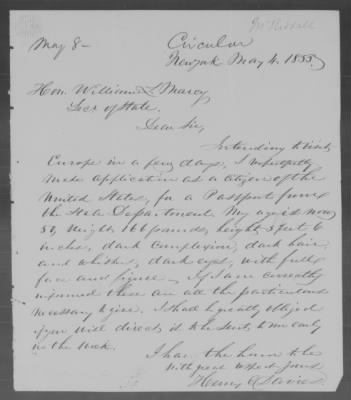 May 8-
Circular
New york May 4. 1855.
Hon. William L. Marcy
Secr of State.
Dear Sir,
Intending to visit
Europe in a few days, I respectfully
make application as a citizen of the
United States, for a Passport from
the State Department. My age is now
weight 166 pounds, height 5 feet 6
inches, dark complexion, dark hair
and whiskers, dark eyes, with full
face and figure - If I am correctly
informed these are all the particulars
necessary to give. I shall be greatly obliged
if you will direct it to be sent to me early
in the week.
I have the honor to be
with great respect yours
Henry